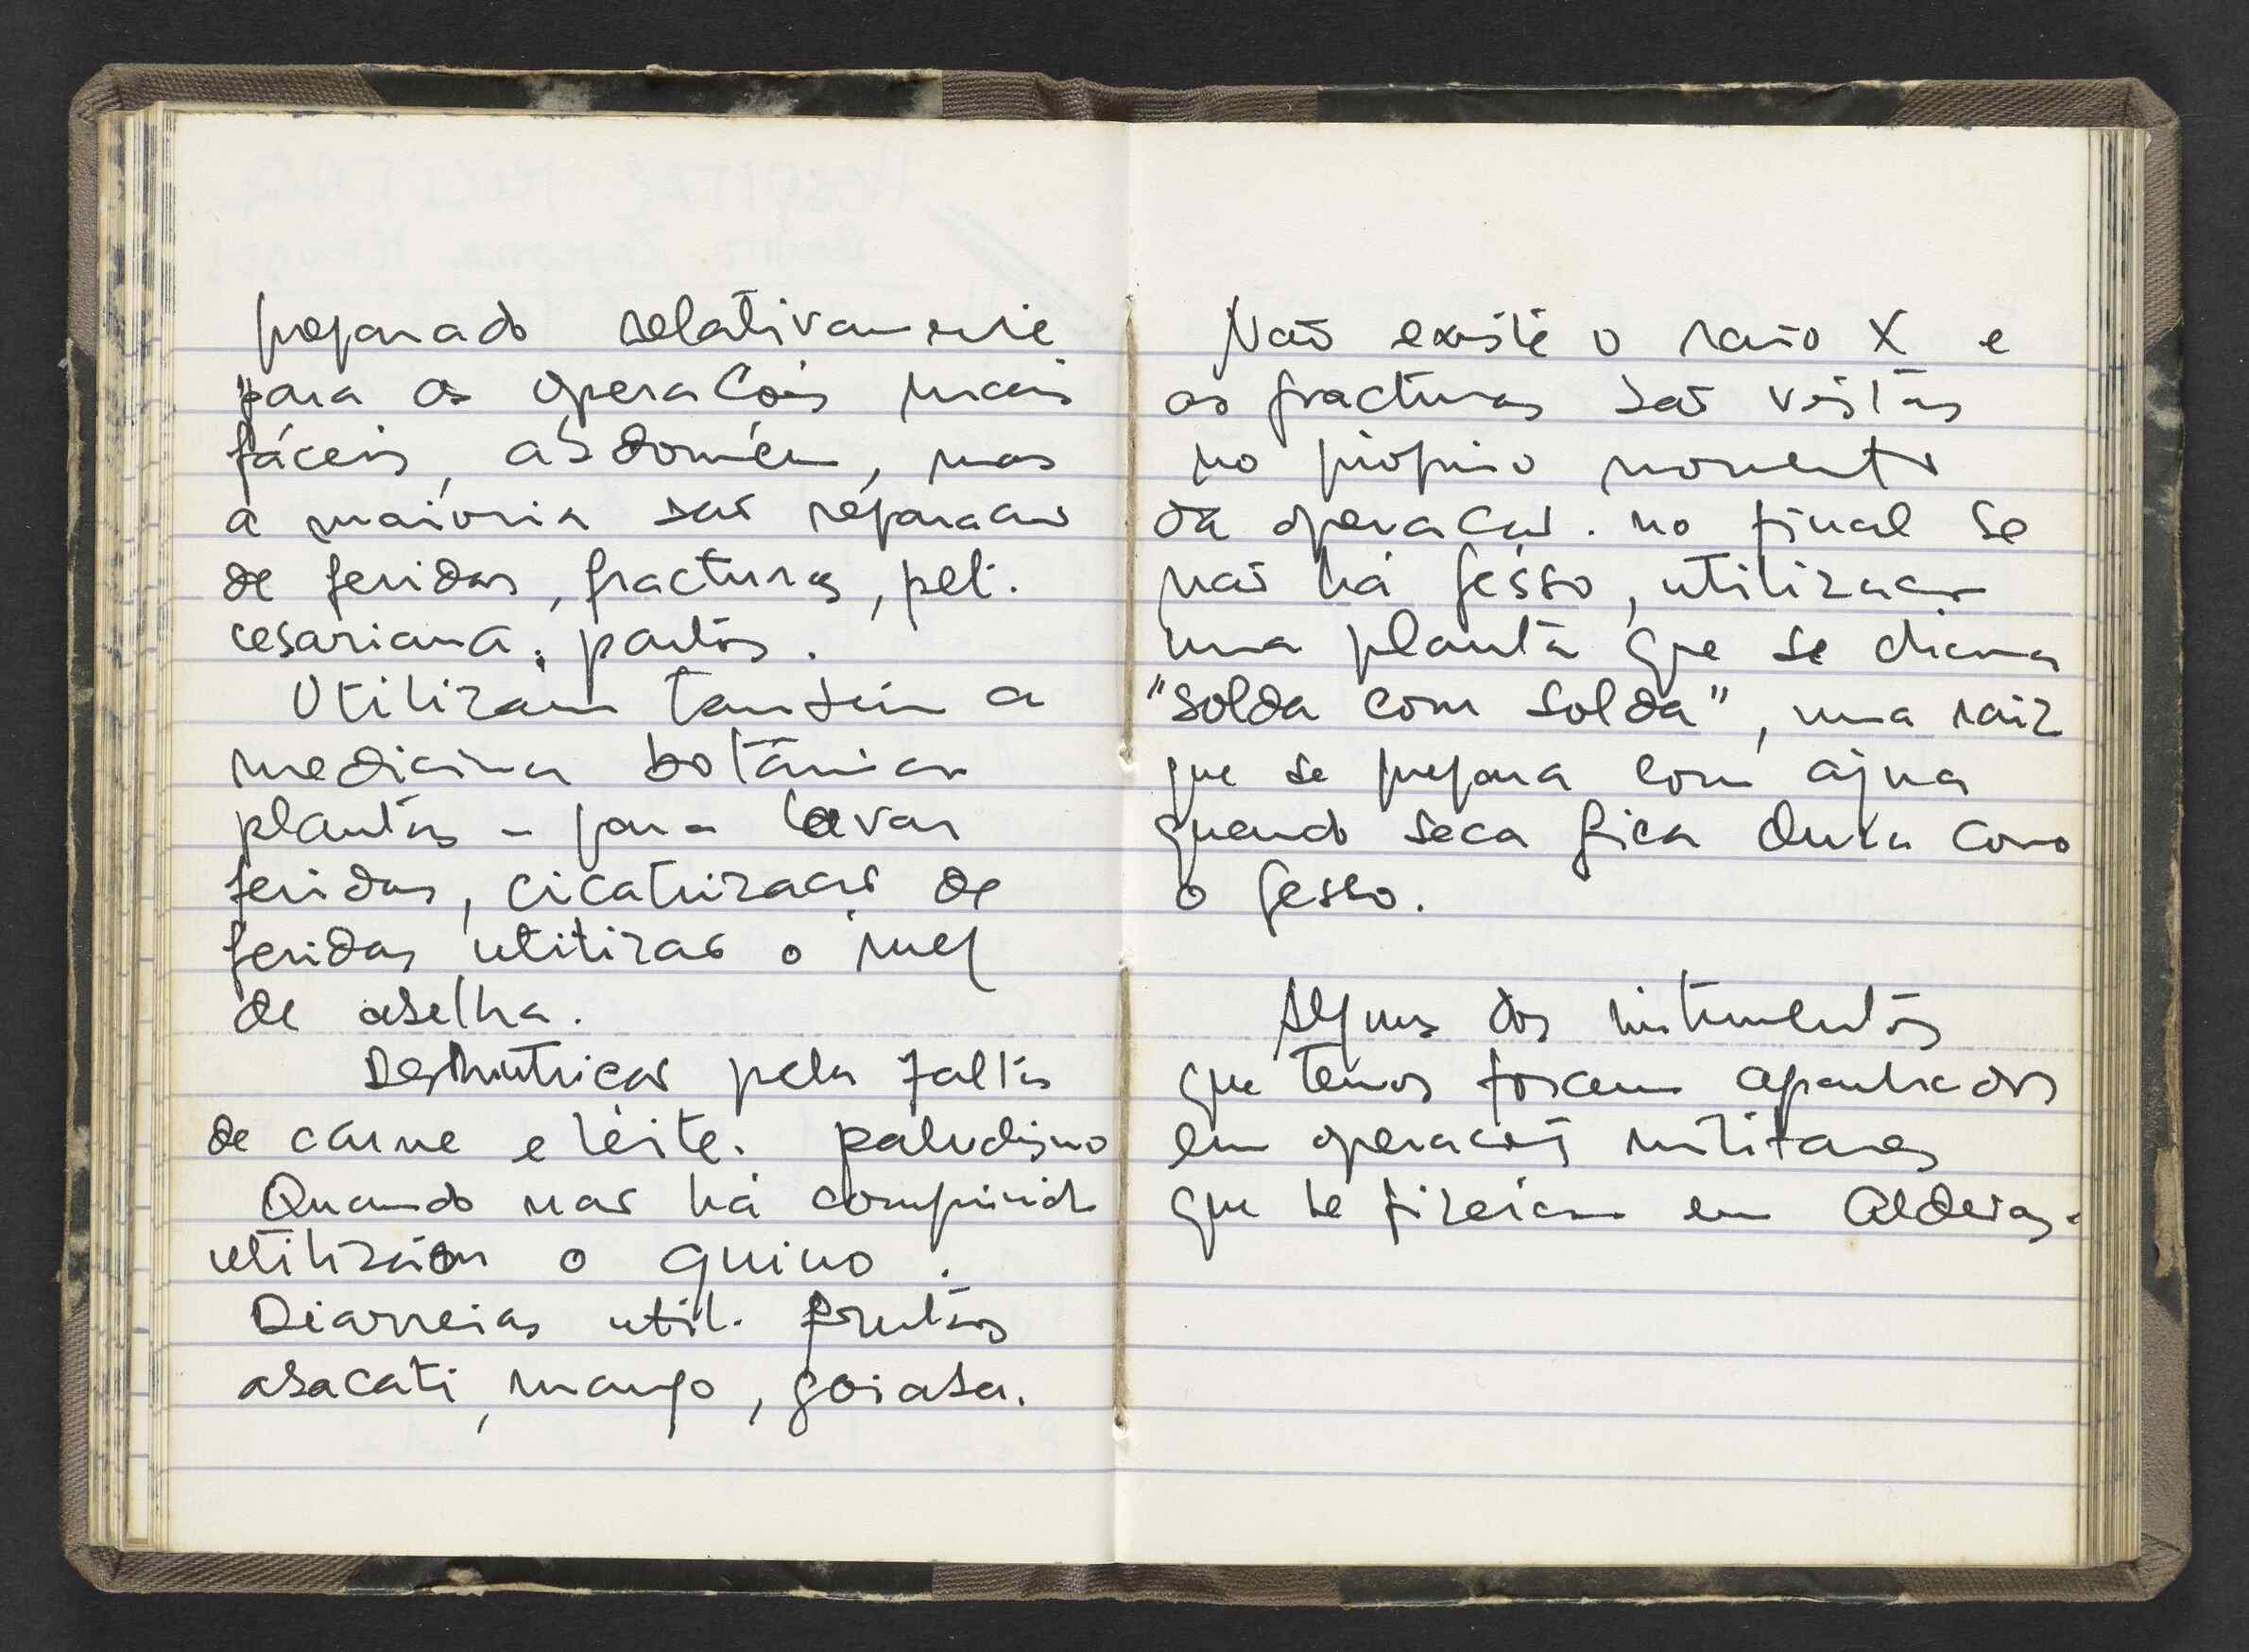 preparado relativamente
para as operacões mais
fáceis, abdomém, mas
a maioria são reparacão
de feridas, fracturas, pel.
cesariana, partos.
Utilizam também a
medicina botânica
plantas - para lavar
feridas, cicatrizacão de
feridas utitizas o mel
de abelha.
Desnutricão pela falta
de carne e leite. paludismo
Quando não há comprimido
utilizam o quino.
Diarreias util. frutas
abacati, mango, goiaba.
Não existe o raio X e
as fracturas são vistas
no próprio momento
da operacão. no final se
não há gesso, utilizam
uma planta que se chama
"solda com solda", uma raiz
que se prepara com água
quando seca fica dura como
o gesso.
Alguns dos instrumentos
que temos foram apanhados
em operacões militares
que se fizeram em aldeias.